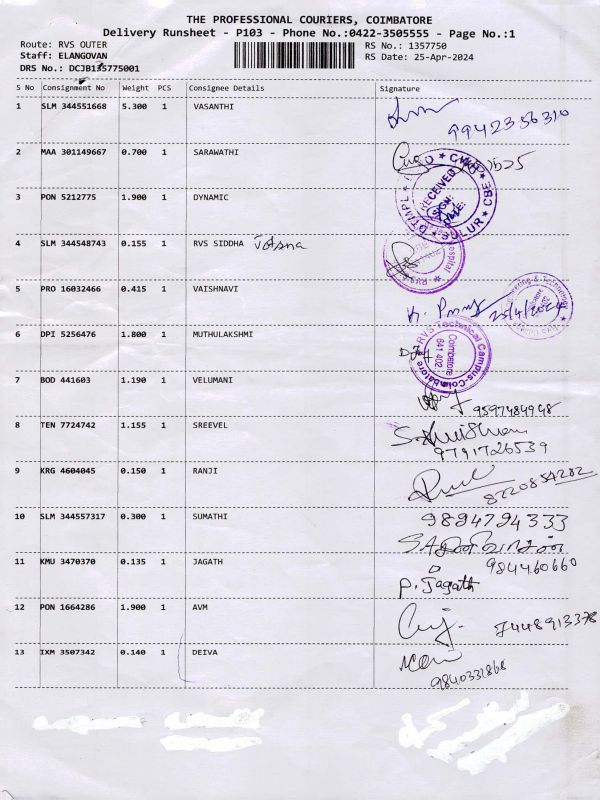 THE PROFESSIONAL COURIERS, COIMBATORE
Delivery Runsheet - P103 - Phone No.:0422-3505555 - Page No.:1
Route: RVS OUTER RS No.: 1357750
Staff: ELANGOVAN RS Date: 25-Apr-2024
DRS No.: DCJB135775001
S No Consignment No Weight PCS Consignee Details Signature
1 SLM 344551668 5.300 1 VASANTHI
9942356310
2 MAA 301149667 0.700 1 SARAWATHI
3 PON 5212775 1.900 1 DYNAMIC
RECEIVED
SIGN:
DATE:
SULUR CBE
4 SLM 344548743 0.155 1 RVS SIDDHA Jotsna
5 PRO 16032466 0.415 1 VAISHNAVI
25/4/2024
6 DPI 5256476 1.800 1 MUTHULAKSHMI
RVS Technical Campus-Coimbatore
Coimbatore
641 402
7 BOD 441603 1.190 1 VELUMANI
9597484948
8 TEN 7724742 1.155 1 SREEVEL
9791726539
9 KRG 4604045 0.150 1 RANJI
8220854282
10 SLM 344557317 0.300 1 SUMATHI
9894794333
11 KMU 3470370 0.135 1 JAGATH
984460660
P. Jagath
12 PON 1664286 1.900 1 AVM
7448913378
13 IXM 3507342 0.140 1 DEIVA
9840331868